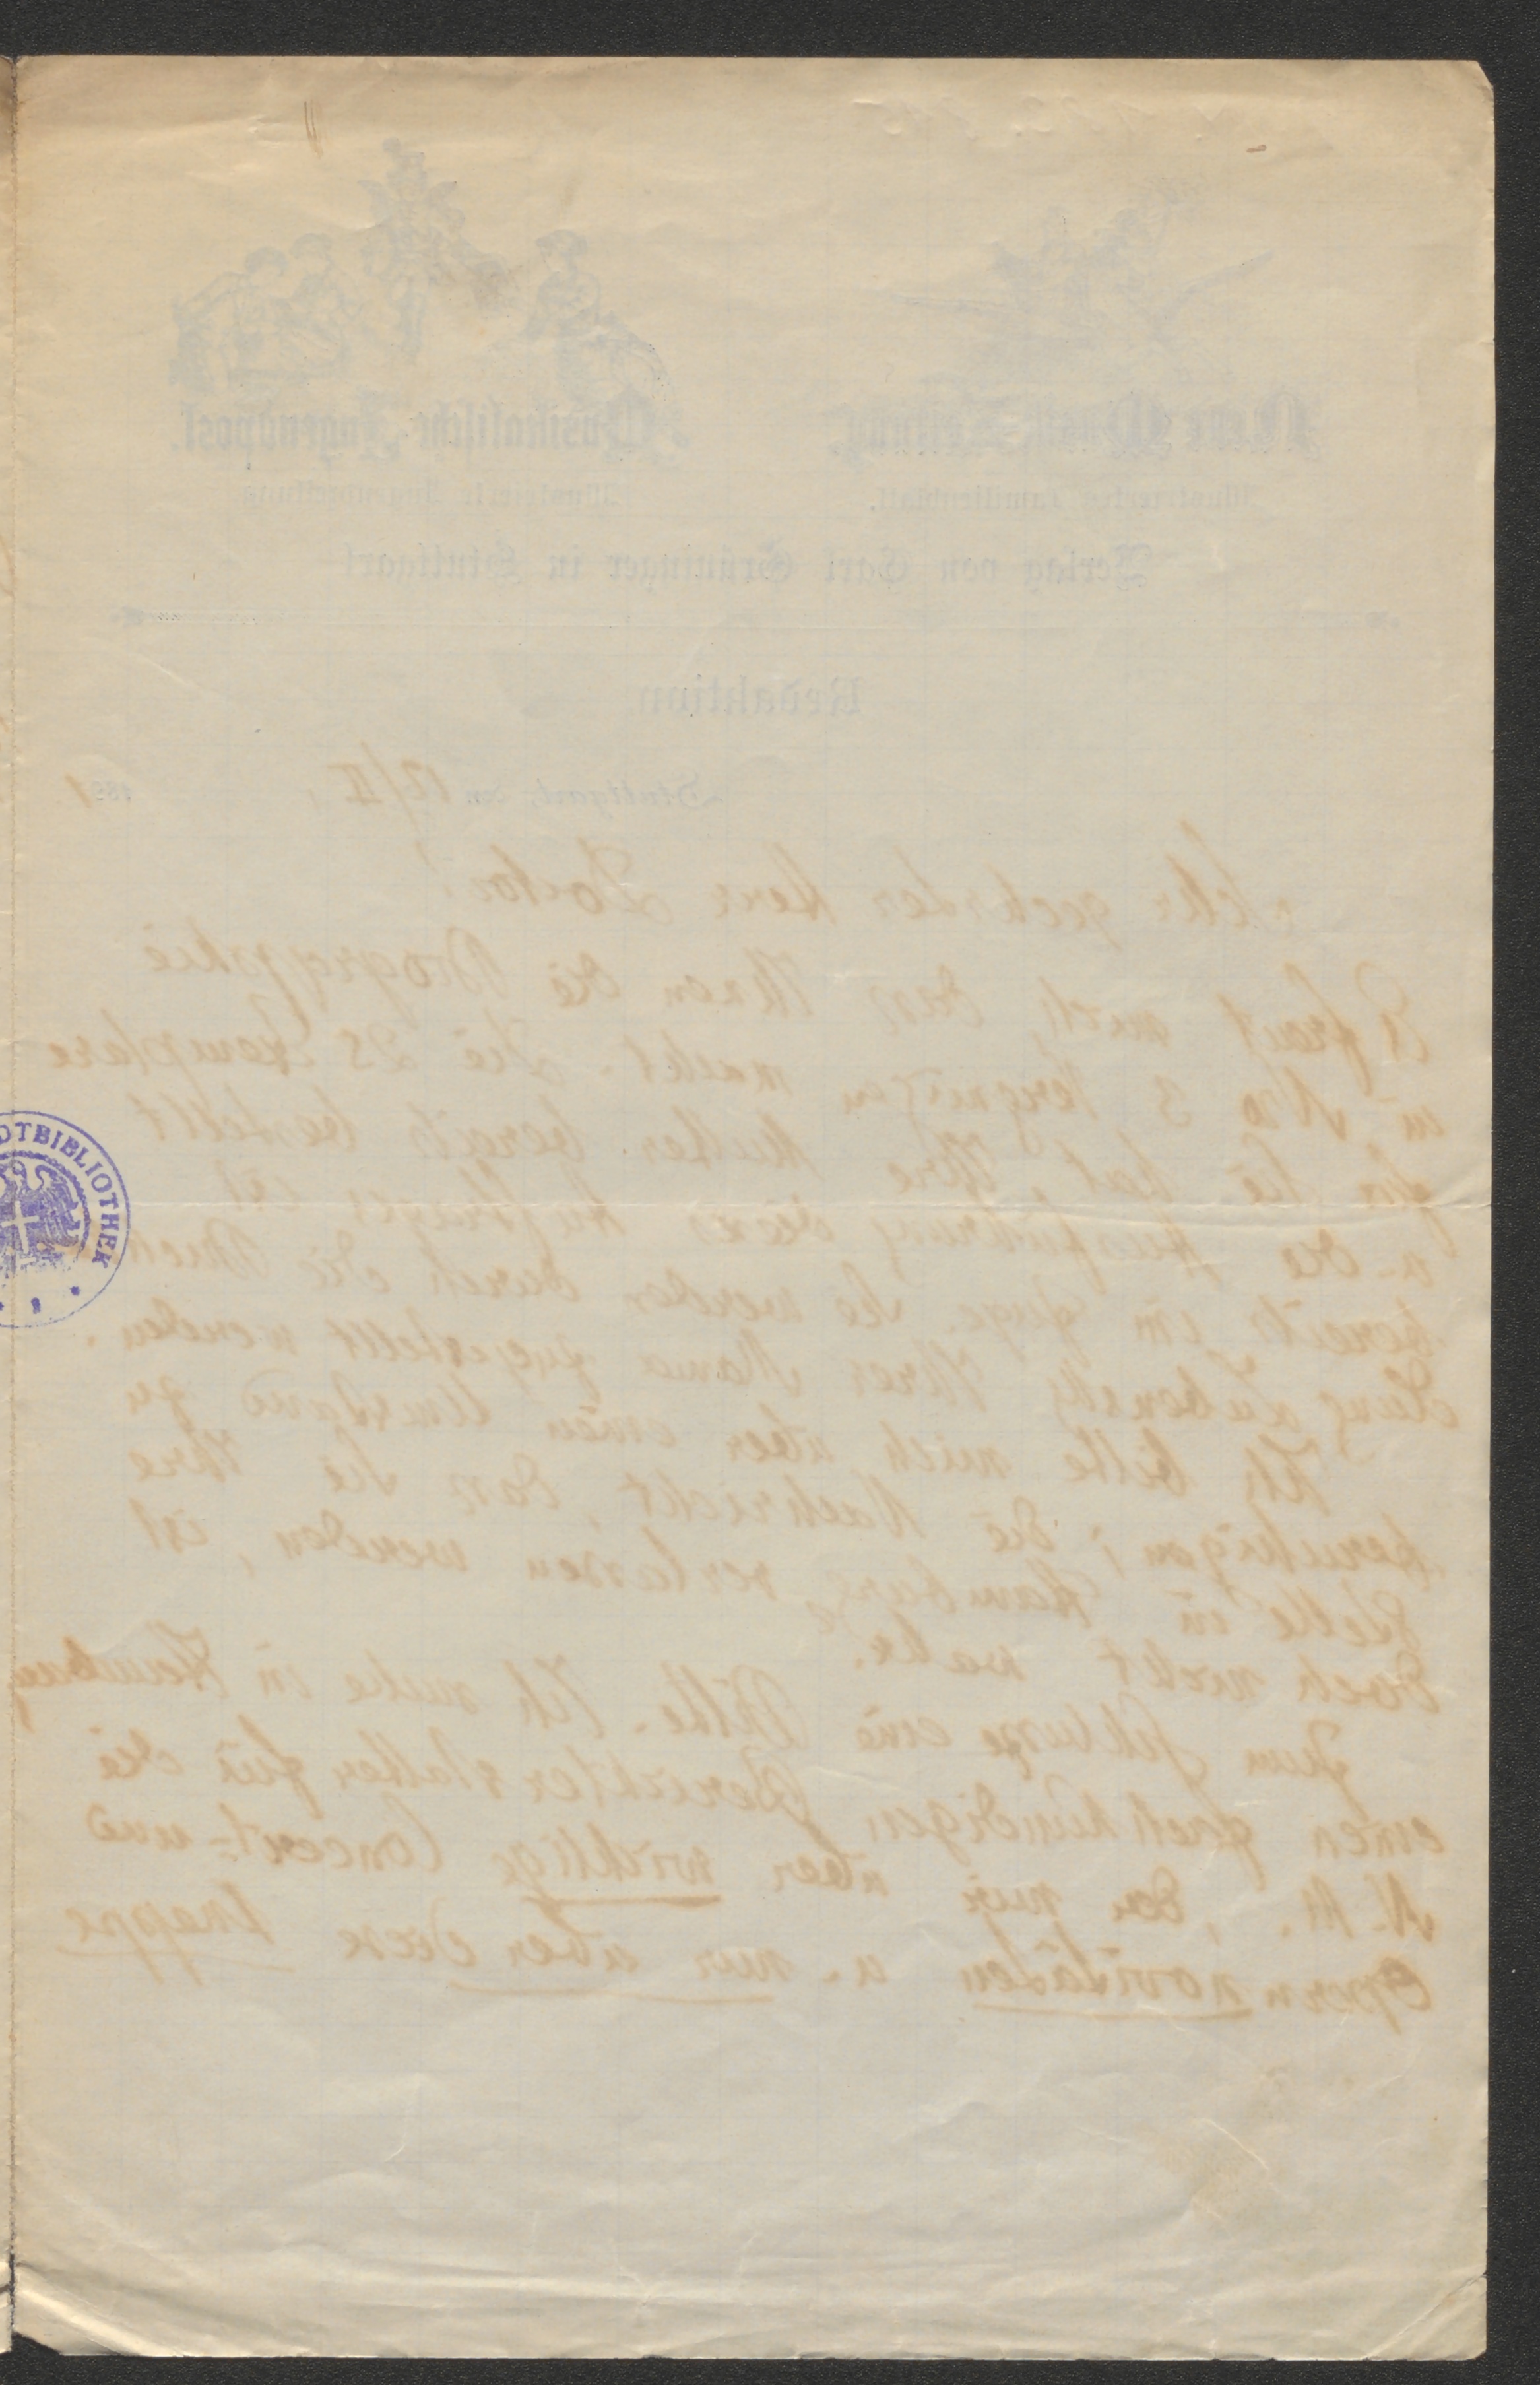 Neue Musik-Zeitung.
Illustriertes Familienblatt.
Musikalische Jugendpost.
Illustrierte Jugendzeitung
Verlag von Carl Grüninger in Stuttgart
Redaktion.
Stuttgart, den 12/II. 1891
Sehr geehrter Herr Doctor!
Es freut mich, dass Ihnen die Biographie
in Nro 3 Vergnügen macht. Die 25 Exemplare
für Sie hat Ihre Mutter bereits bestellt
u. die Ausführung dieses Auftrages ist
bereits im Zuge. Sie werden durch die
Ihrer Mama zugestellt werden.
Ich bitte mich über einen Umstand zu
beruhigen; die Nachricht, dass Sie Ihre
Stelle in Hamburg verlassen werden, ist
doch nicht wahr.
Zum Schlusse eine Bitte. Ich suche in Hamburg
einen fachkundigen Berichterstatter für die
N. M., der mir über wichtige Concert- und
Opernnovitäten u. nur über diese knappe
DTBIBLIOTHEK